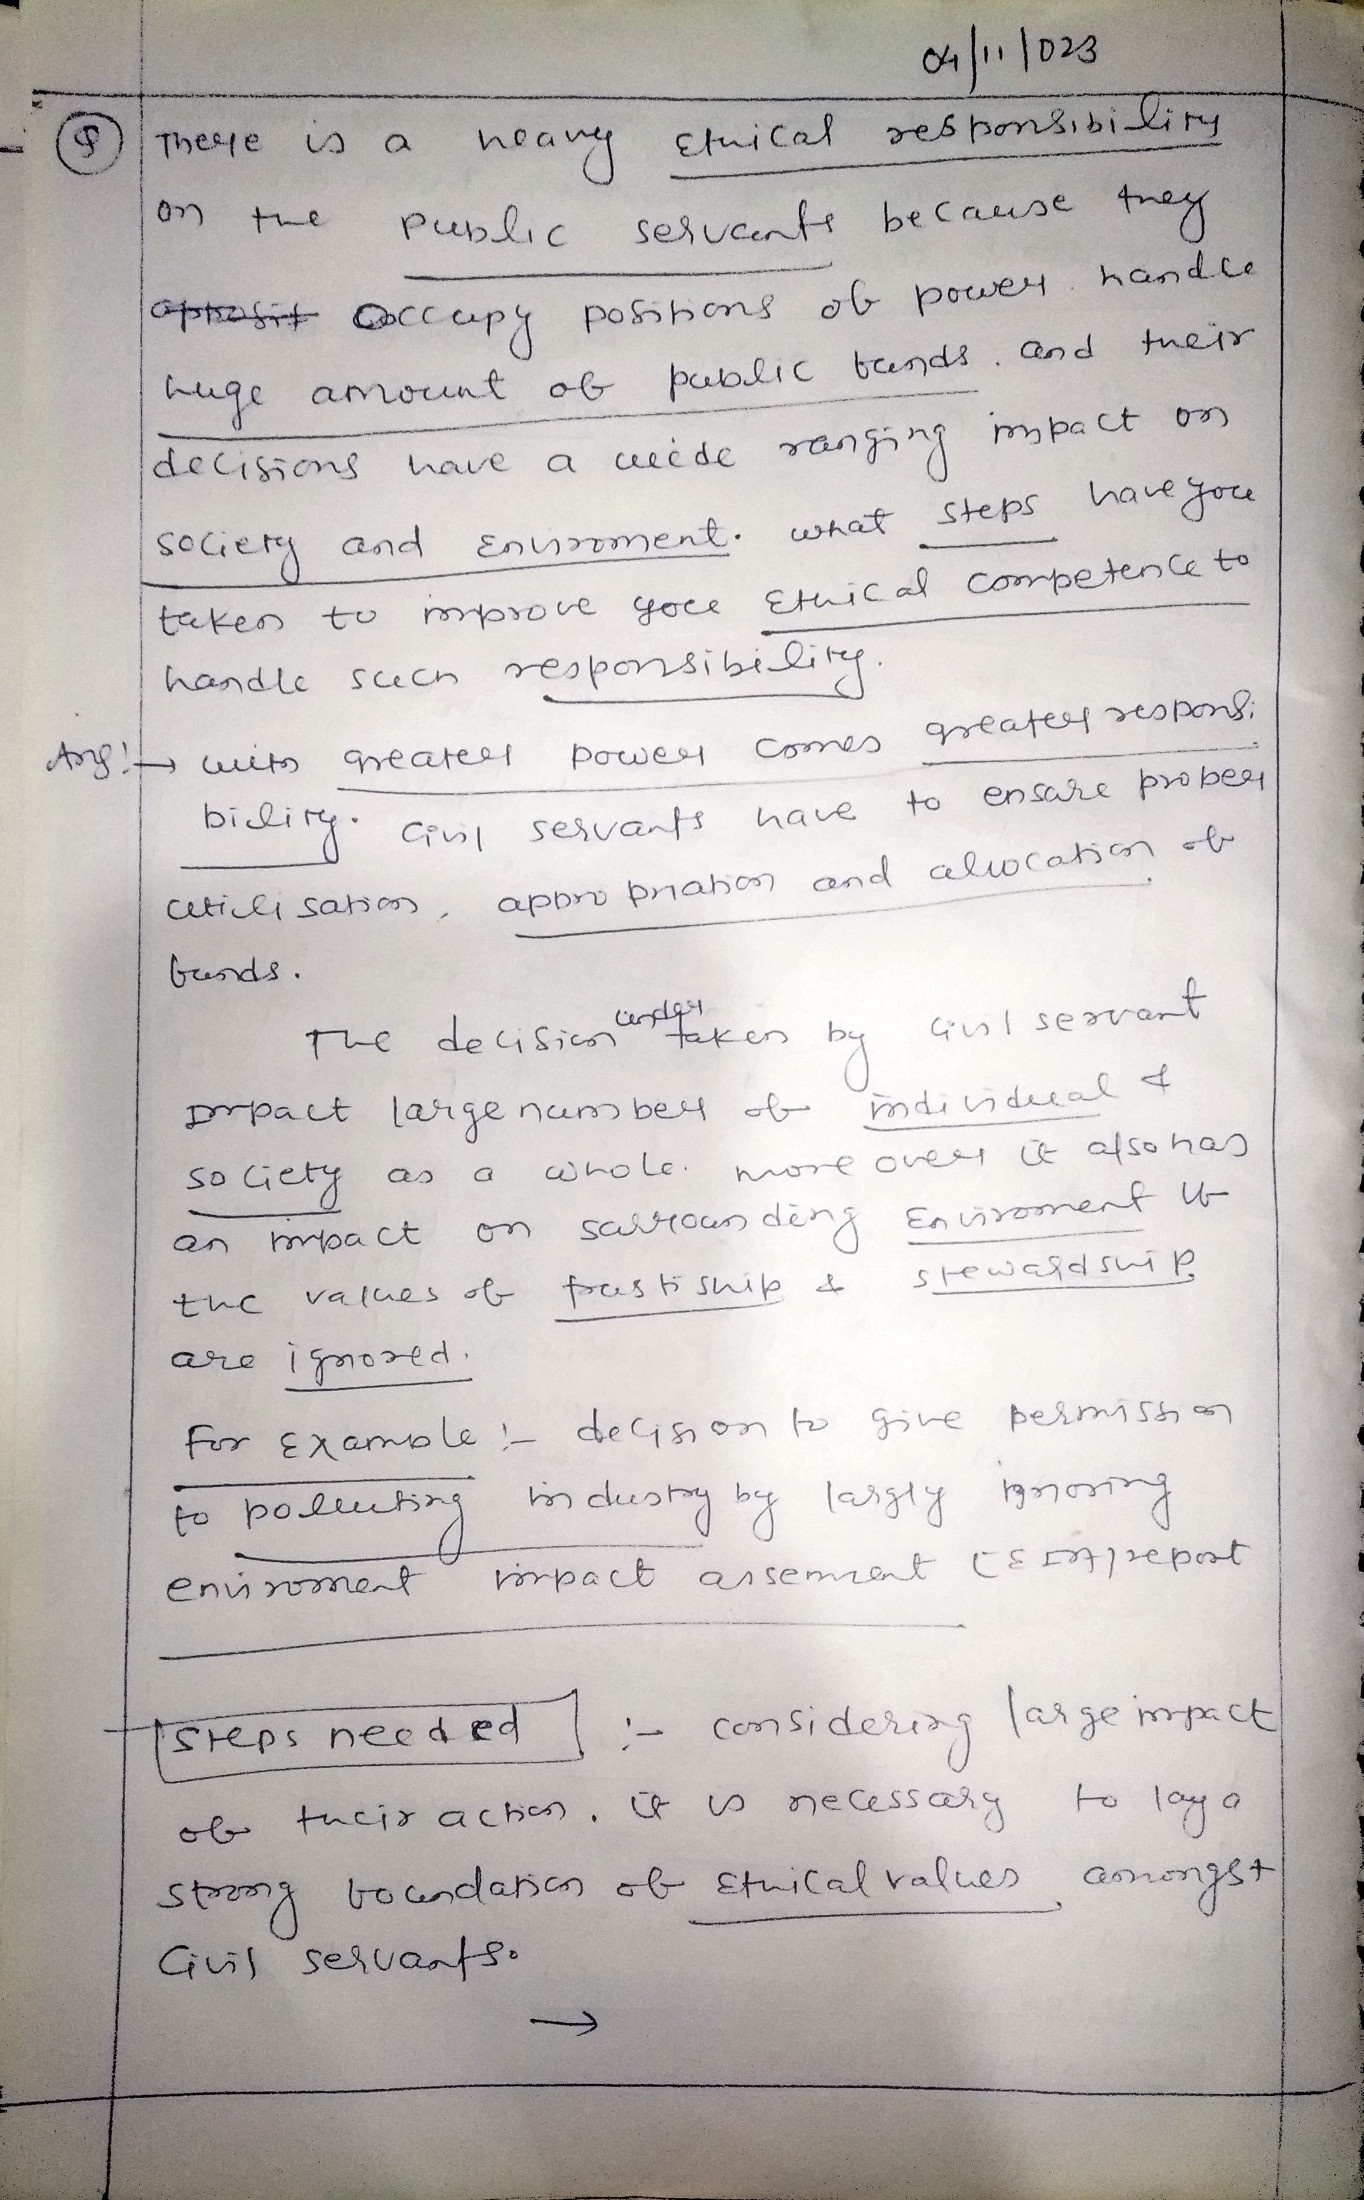 04/11/023
Q There is a heavy Ethical responsibility
on the public servants because they
opposit Occupy positions of power. handle
huge amount of public funds. and their
decisions have a wide ranging impact on
society and Enviroment. what steps have you
taken to improve your Ethical competence to
handle such responsibility.
Ans:→ with greater power comes greater responsi
bility. Civil servants have to ensure proper
utilisation, appropriation and allocation of
funds.
The decision undertaken by Civil servant
Impact large number of individual &
society as a whole. more over it also has
an impact on surrounding Enviroment If
the values of trustiship & stewardship
are ignored.
For Example :- decision to give permission
to polluting industry by largly ignoring
enviroment impact assement (EIA) report
Steps needed :- considering large impact
of their action. it is necessary to lay a
strong foundation of Ethical values amongst
Civil servants.
→